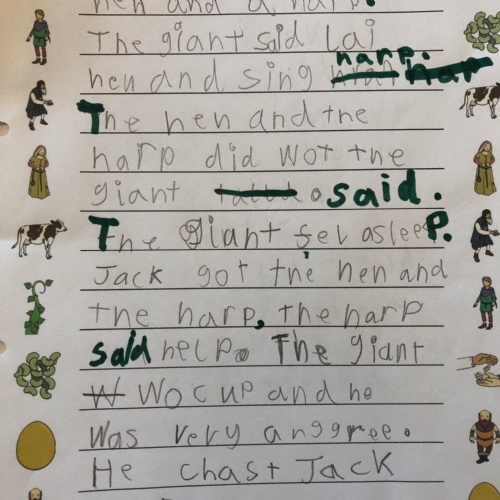 hen and a harp.
The giant said Lai
harp.
hen and sing hrar har
The hen and the
harp did wot the
giant said.
The giant fel asleeP.
Jack got the hen and
the harp, the harp
said help. The giant
W Woc up and he
Was very anggree.
He chast Jack